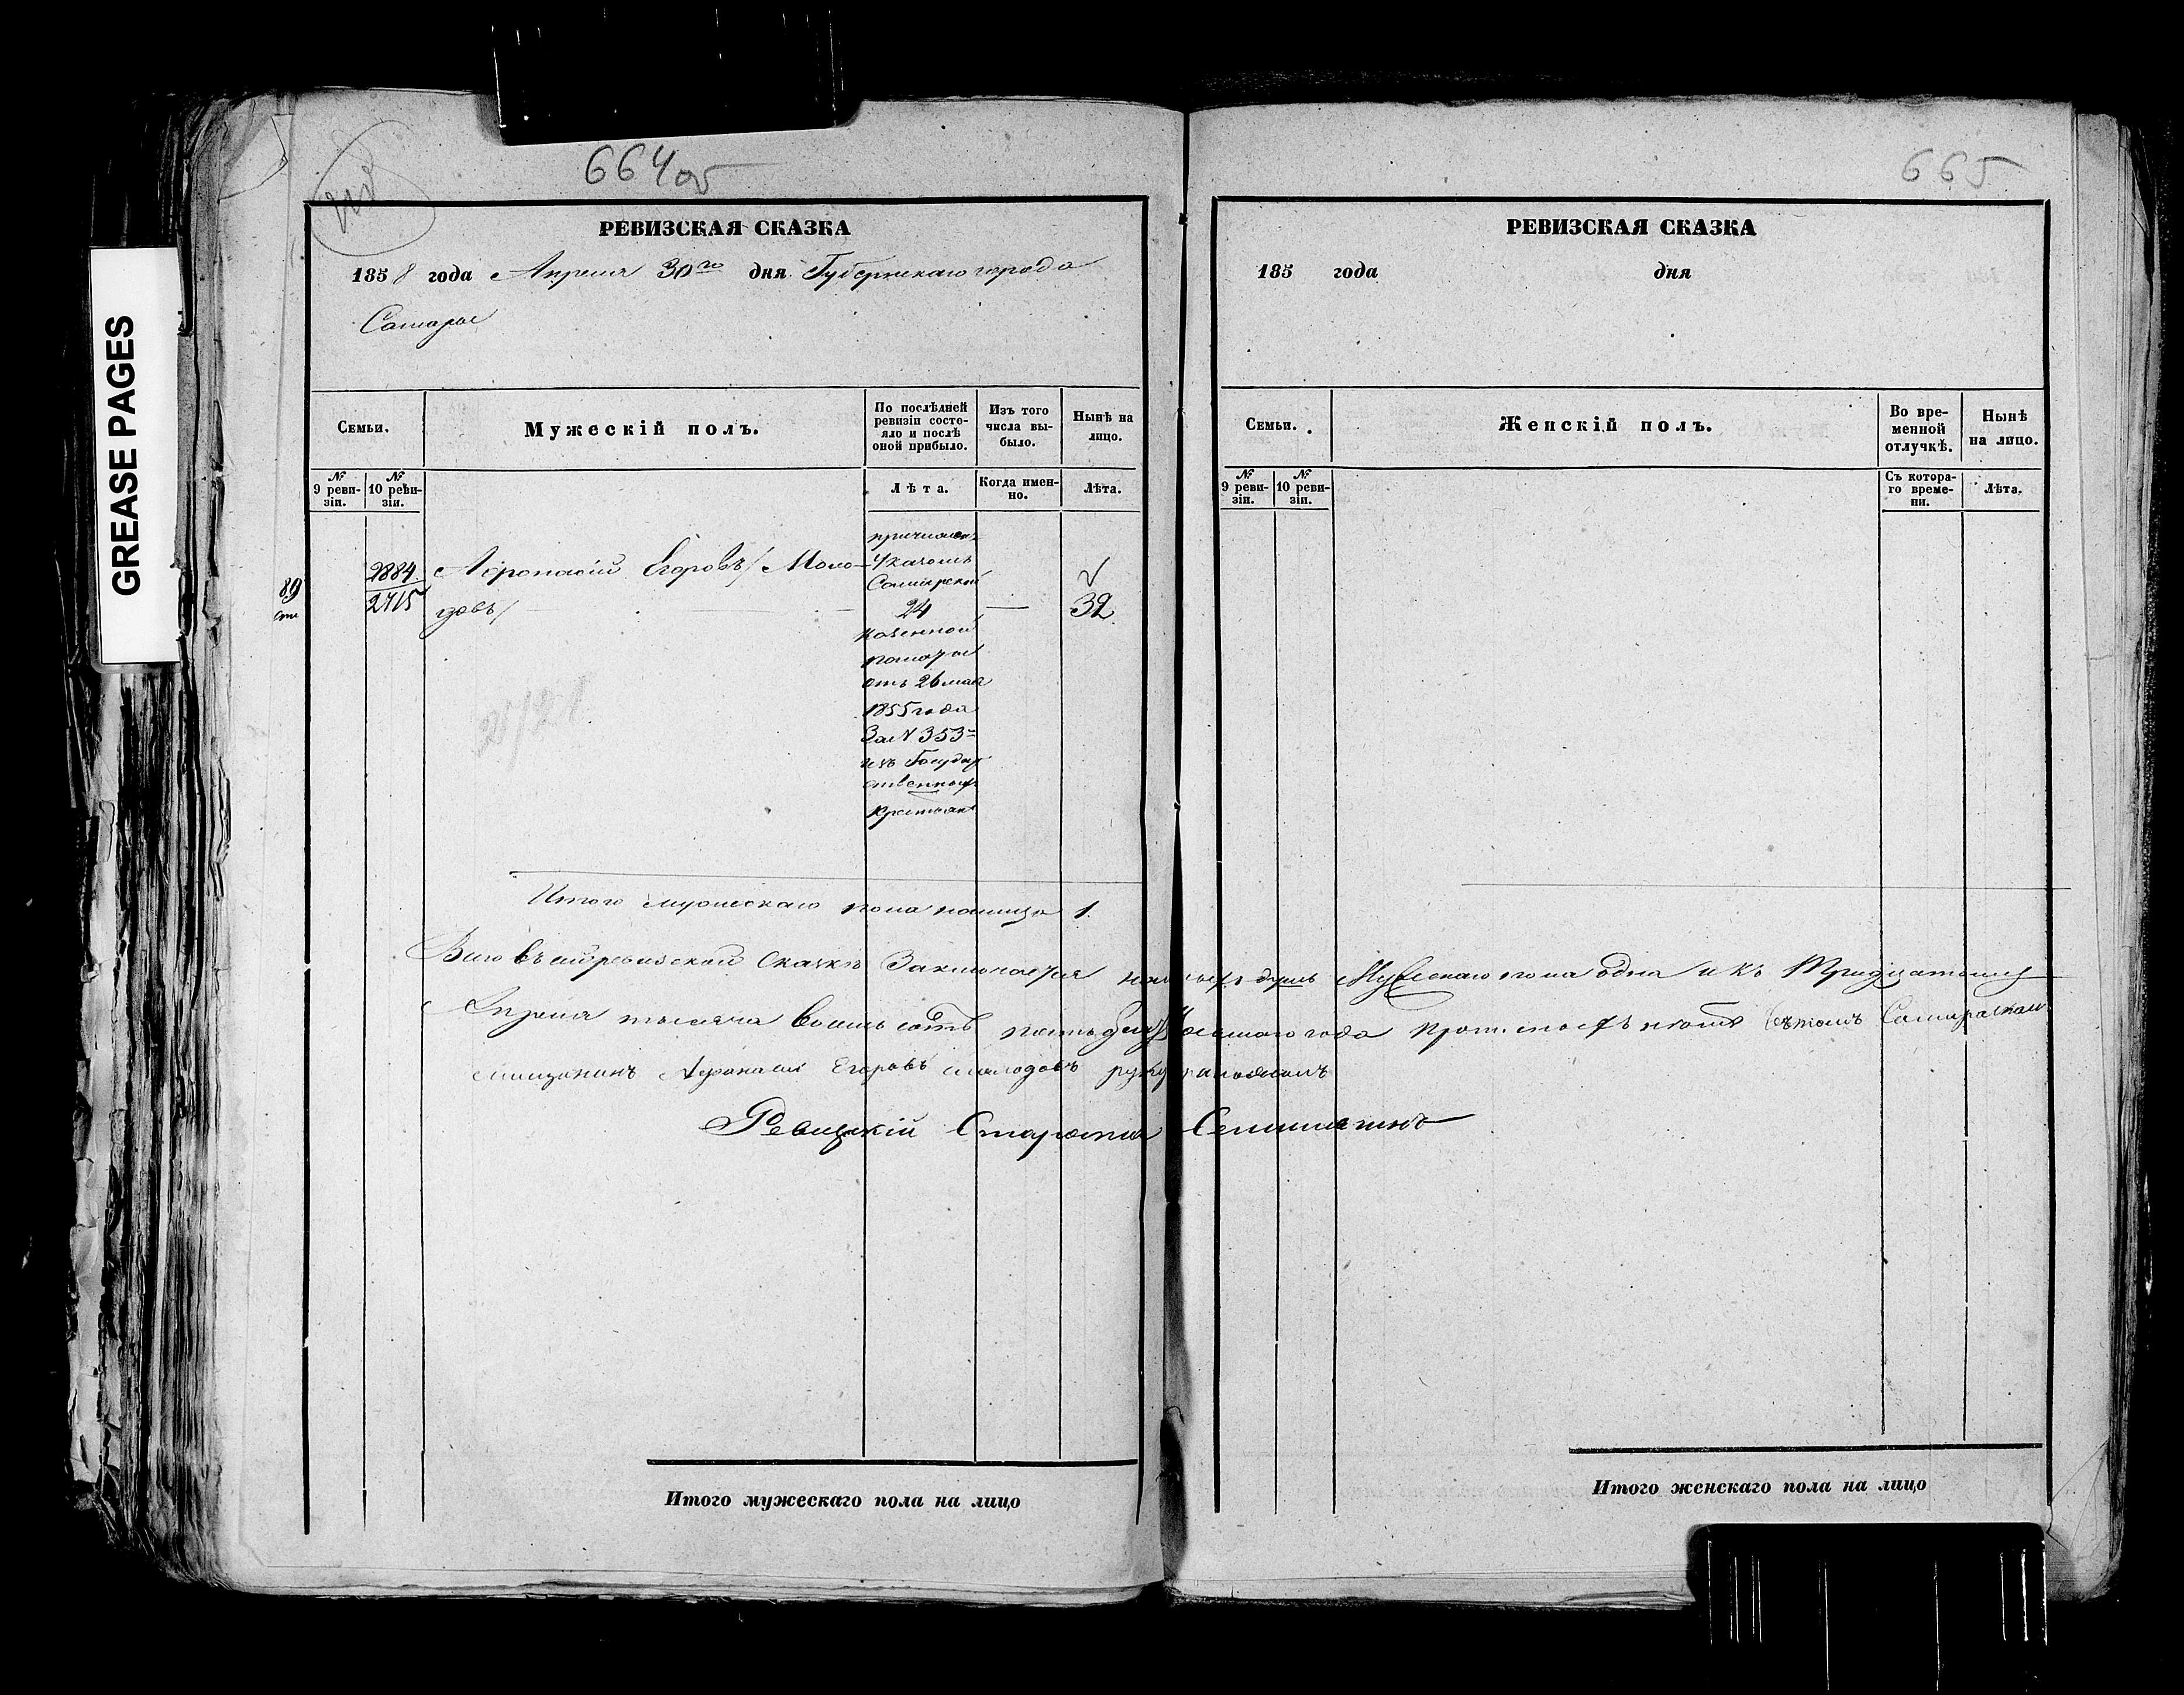 664 об
665
GREASE PAGES
РЕВИЗСКАЯ СКАЗКА
1858 года Апреля 30го дня Губернскаго города
Самары
Семьи.
Мужескій полъ.
По послѣдней ревизіи состо-
яло и послѣ
оной прибыло.
Изъ того
числа вы-
было.
Нынѣ на
лицо.
№
9 реви-
зіи.
№
10 реви-
зіи.
Лѣта.
Когда имен-
но.
Лѣта.
89
2884
2715
Афонасій Егоровъ / Моло-
довъ /
причисленъ
Указомъ
Самарской
24
казенной
палаты
отъ 26 мая
1855 года
За № 353
изъ Государ
ственныхъ
крестьянъ
—
32
Итого мужескаго пола налицо 1.
Всего въ сей ревизской Сказкѣ Заключается наличныхъ душъ Мужескаго пола одна и къ Тридцатому
Апреля тысяча восемь сотъ пятьдесятъ осьмаго года
мещанинъ Афонасій Егоровъ Молодовъ
Ревизскій Староста
РЕВИЗСКАЯ СКАЗКА
185 года дня
Семьи.
Женскій полъ.
Во вре-
менной
отлучкѣ.
Нынѣ
на лицо.
№
9 реви-
зіи.
№
10 реви-
зіи.
Съ котора-
го време-
ни.
Лѣта.
Итого мужескаго пола на лицо
Итого женскаго пола на лицо